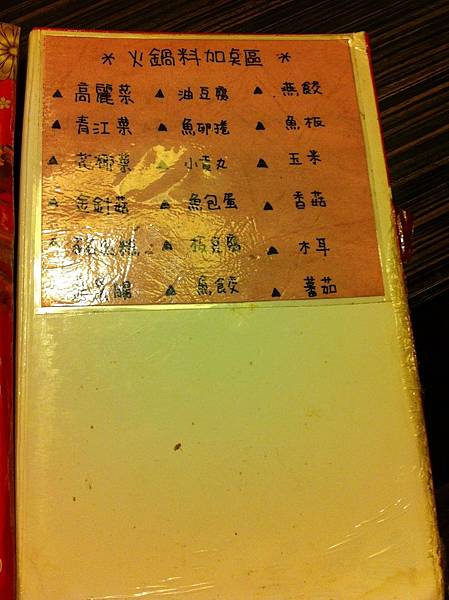 * 火鍋料加點區 *
▲ 高麗菜 ▲ 油豆腐 ▲ 燕餃
▲ 青江菜 ▲ 魚卵捲 ▲ 魚板
▲ 花椰菜 ▲ 小貢丸 ▲ 玉米
▲ 金針菇 ▲ 魚包蛋 ▲ 香菇
▲ 板豆腐 ▲ 木耳
▲ 魚餃 ▲ 蕃茄